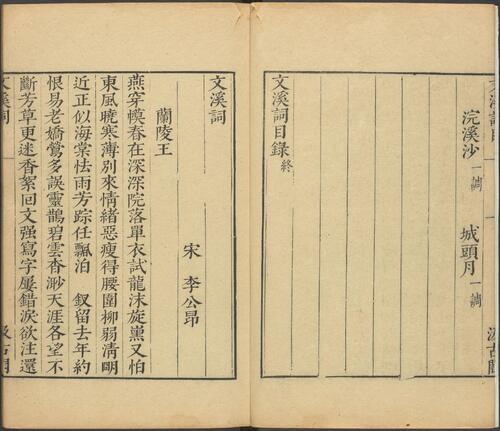 浣溪沙一調　城頭月一調
文溪詞目錄終
汲古閣
文溪詞
宋　李公昂
蘭陵王
燕穿幙春在深深院落單衣試龍沫旋薰又怕
東風曉寒薄別來情緒惡瘦得腰圍柳弱清明
近正似海棠怯雨芳踪任飄泊　釵留去年約
恨易老嬌鶯多誤靈鵲碧雲杳渺天涯各望不
斷芳草更迷香絮回文强寫字屢錯淚欲注還
文溪詞
汲古閣